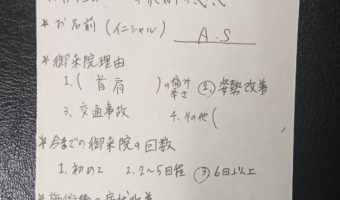 *お名前(イニシャル) A.S
*御来院理由
1.(首肩)の痛み 辛さ ②.姿勢改善
3.交通事故 4.その他(
*今までの御来院の回数
1.初めて 2.2~5回程 ③6回以上